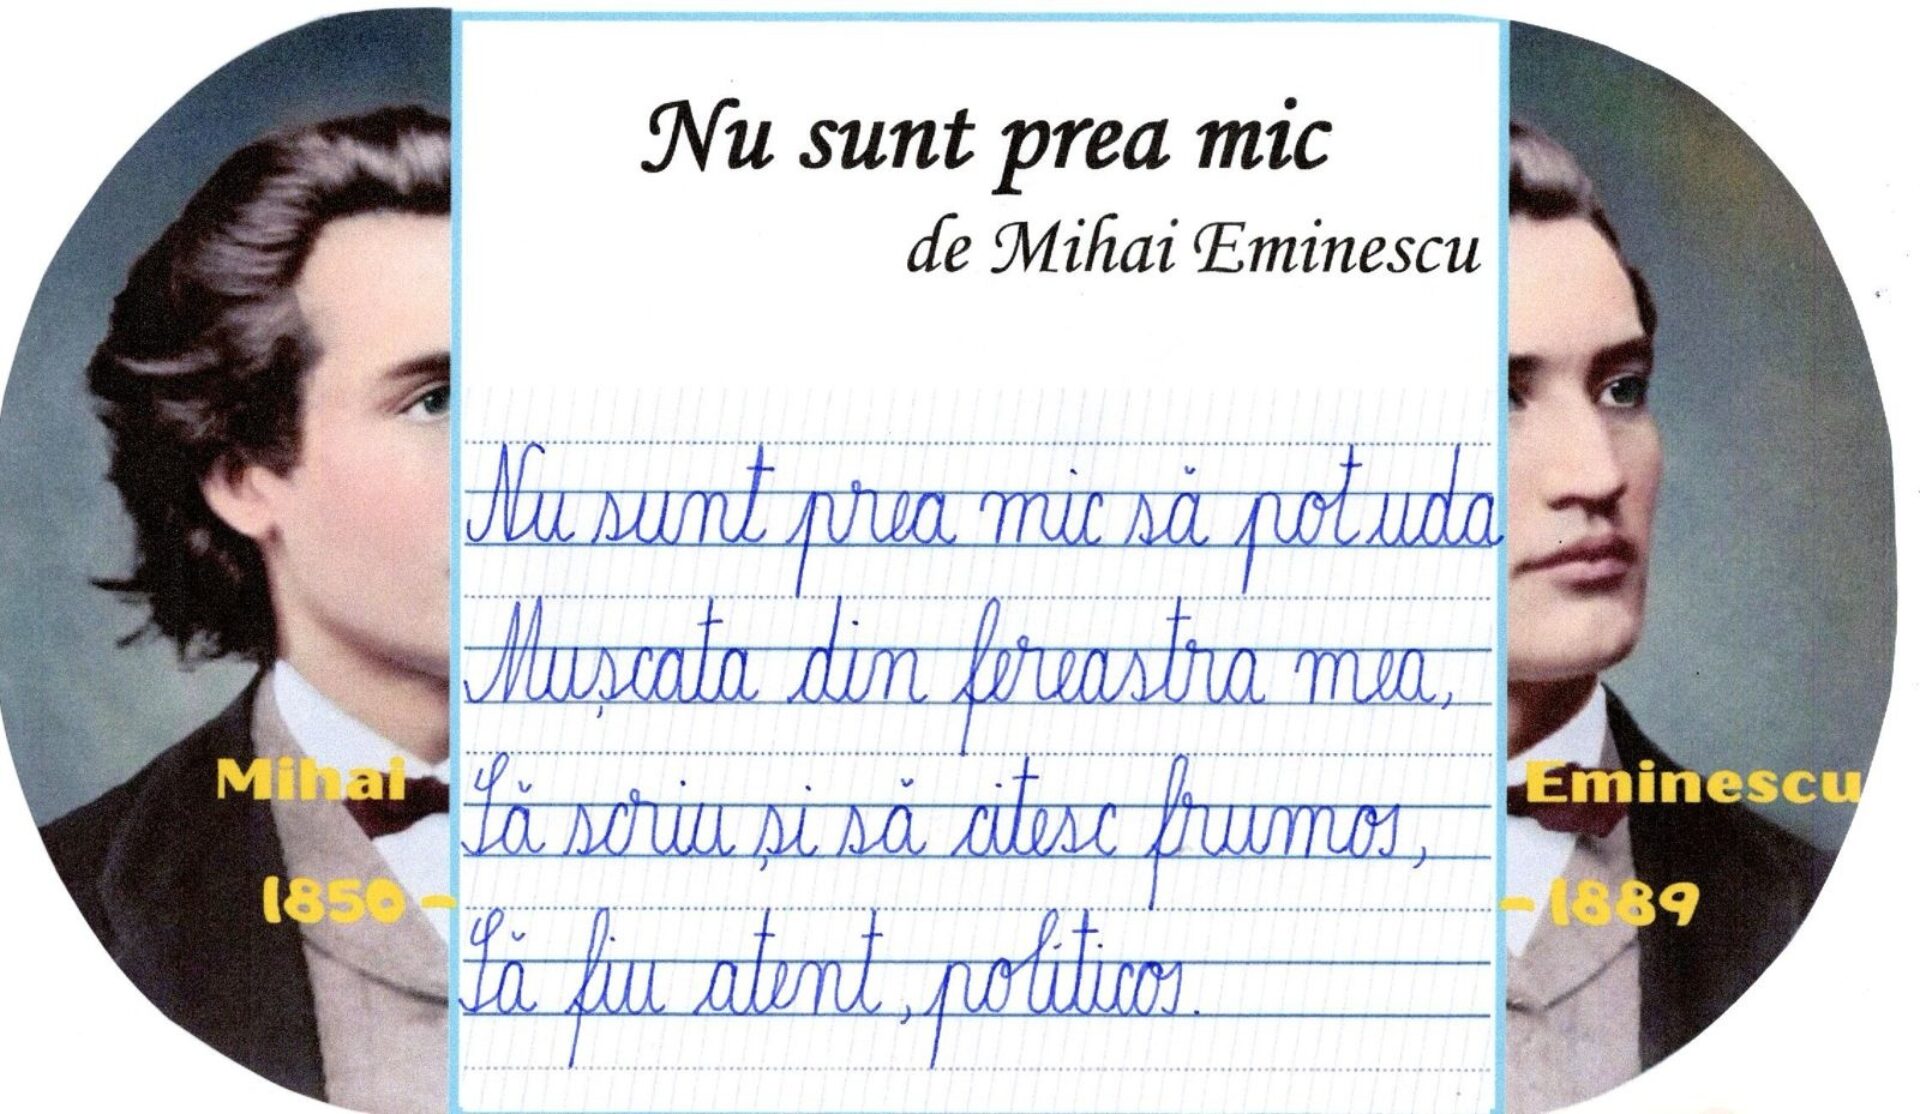 Nu sunt prea mic
de Mihai Eminescu
Nu sunt prea mic să pot uda
Mușcata din fereastra mea,
Să scriu și să citesc frumos,
Să fiu atent, politicos.
Mihai
1850 -
Eminescu
- 1889